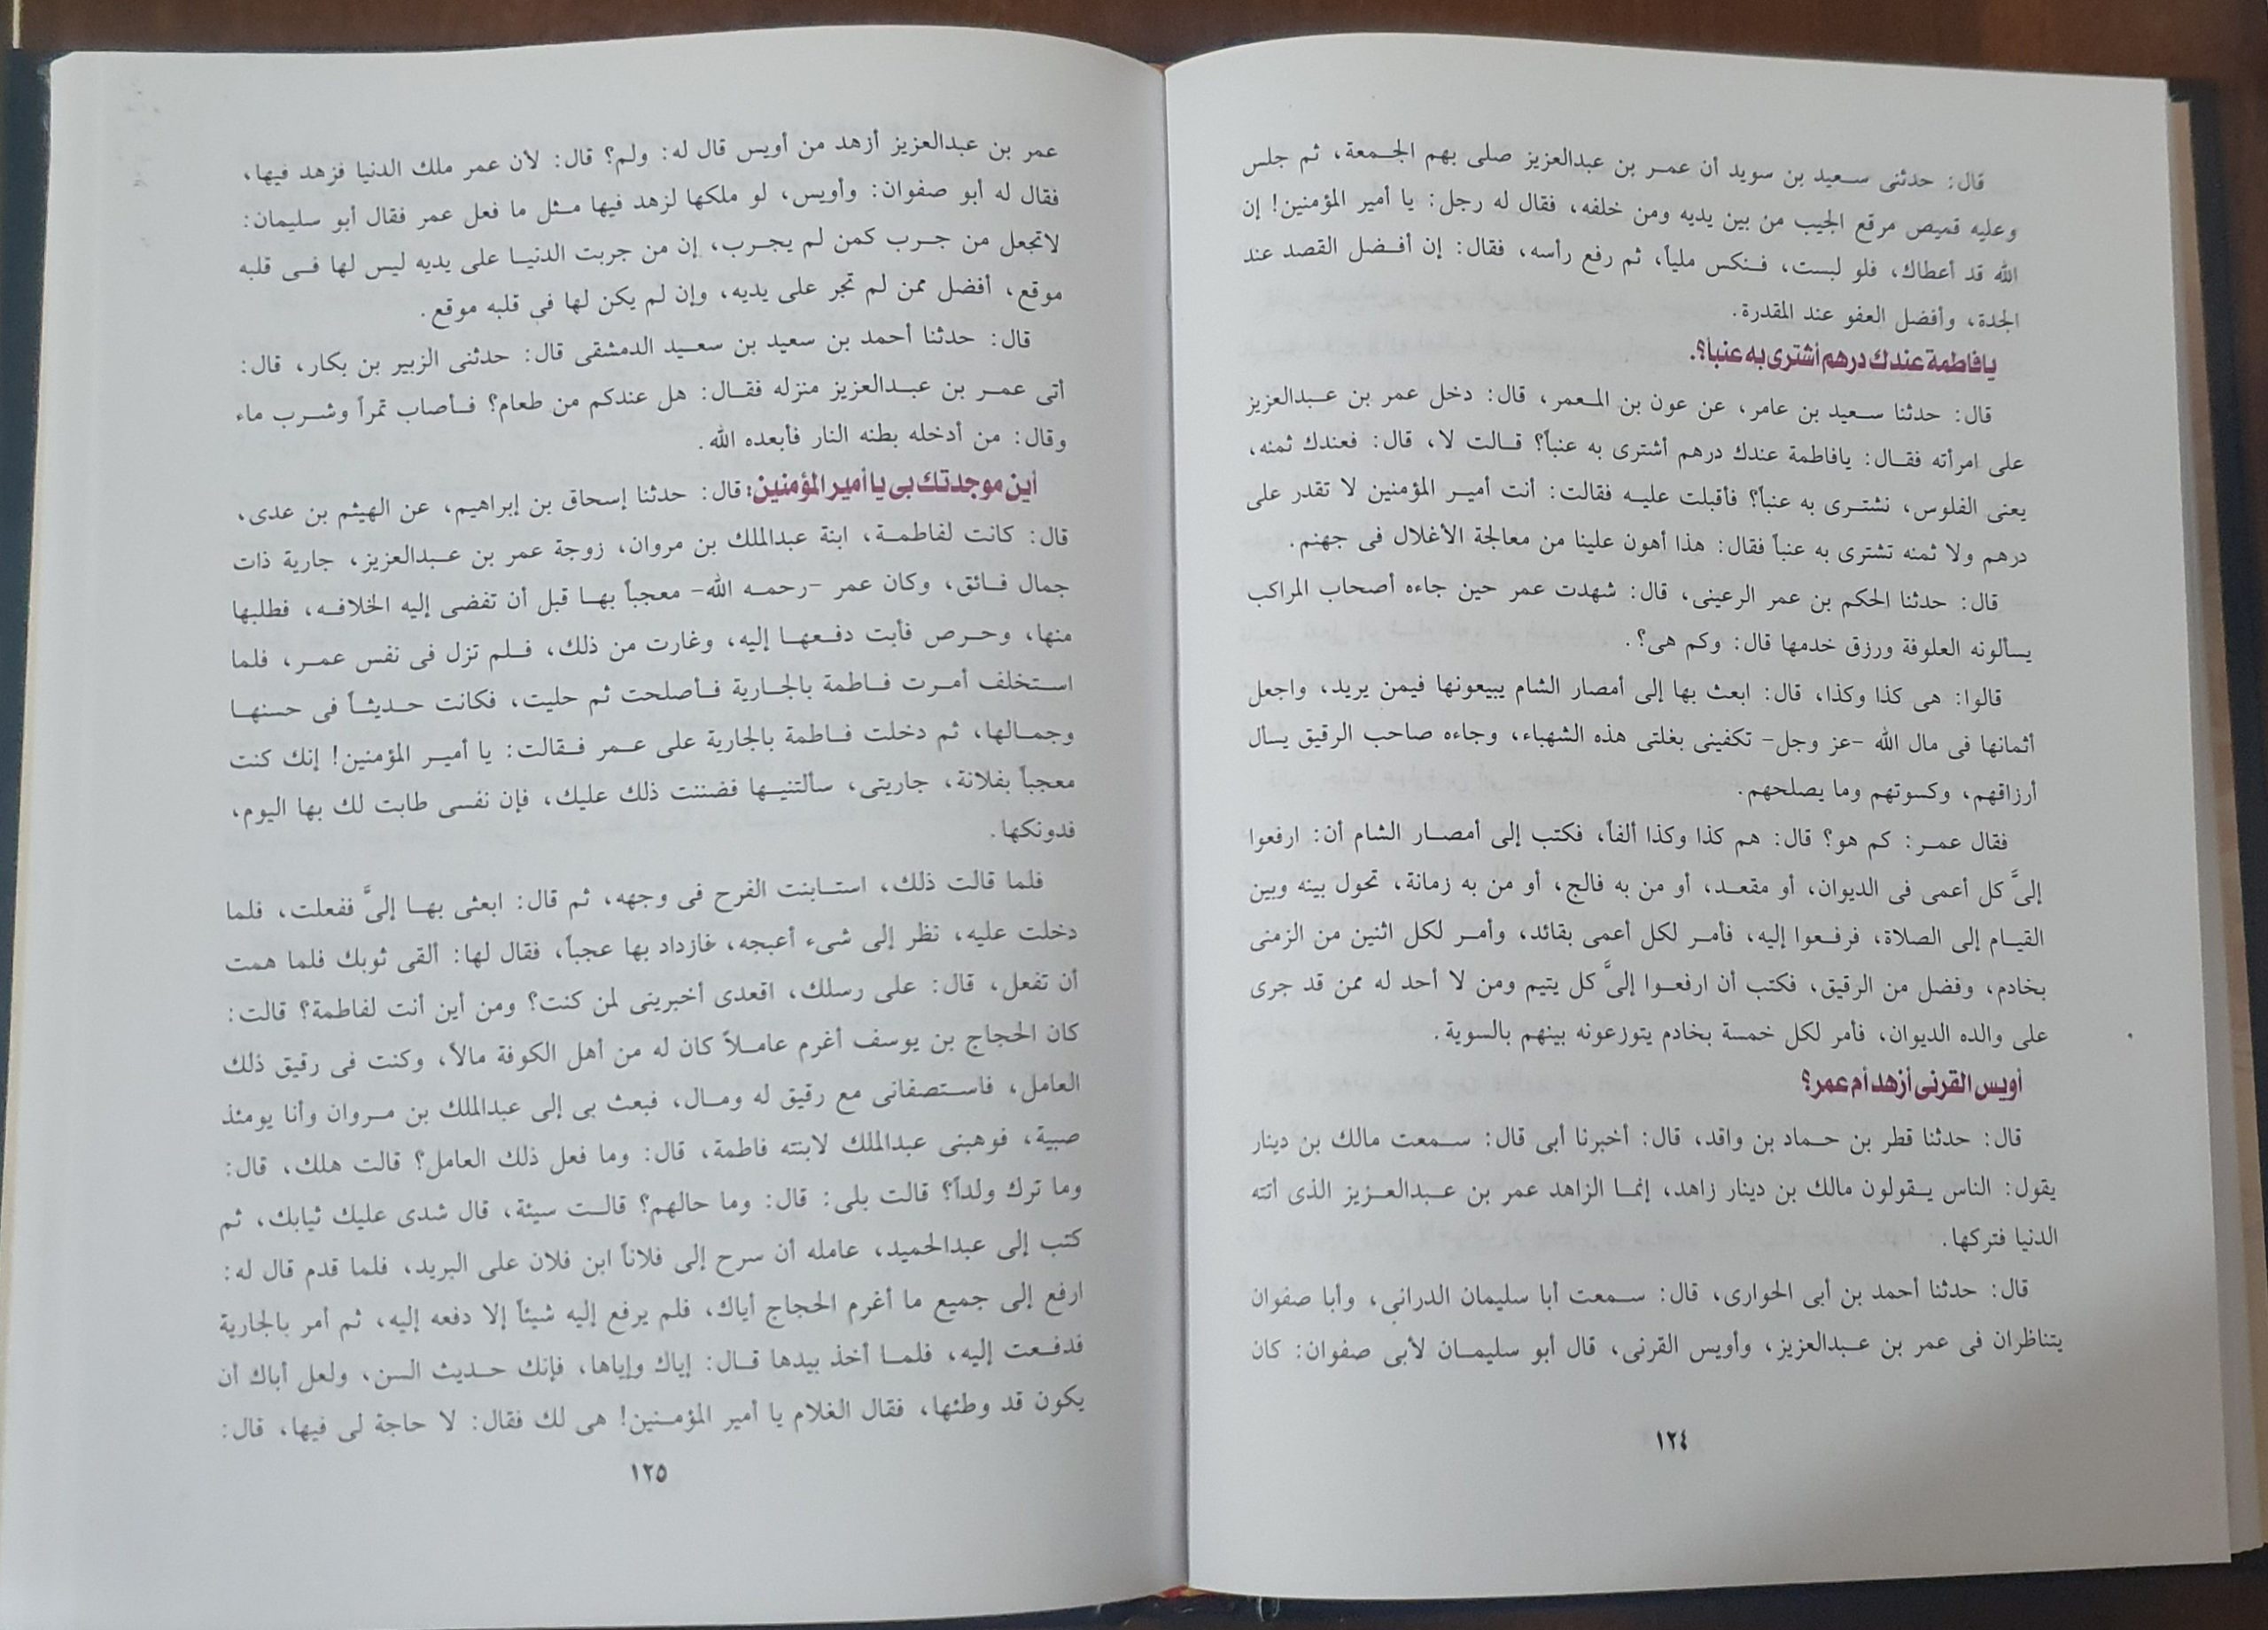 قال: حدثنى سعيد بن سويد أن عمر بن عبدالعزيز صلى بهم الجمعة، ثم جلس
وعليه قميص مرقع الجيب من بين يديه ومن خلفه، فقال له رجل: يا أمير المؤمنين! إن
الله قد أعطاك، فلو لبست، فنكس ملياً، ثم رفع رأسه، فقال: إن أفضل القصد عند
الجدة، وأفضل العفو عند المقدرة.
يافاطمة عندك درهم أشترى به عنباً؟.
قال: حدثنا سعيد بن عامر، عن عون بن المعمر، قال: دخل عمر بن عبدالعزيز
على امرأته فقال: يافاطمة عندك درهم أشترى به عنباً؟ قالت لا، قال: فعندك ثمنه،
يعنى الفلوس، نشترى به عنباً؟ فأقبلت عليه فقالت: أنت أمير المؤمنين لا تقدر على
درهم ولا ثمنه تشترى به عنباً فقال: هذا أهون علينا من معالجة الأغلال فى جهنم.
قال: حدثنا الحكم بن عمر الرعينى، قال: شهدت عمر حين جاءه أصحاب المراكب
يسألونه العلوفة ورزق خدمها قال: وكم هى؟.
قالوا: هى كذا وكذا، قال: ابعث بها إلى أمصار الشام يبيعونها فيمن يريد، واجعل
أثمانها فى مال الله -عز وجل- تكفينى بغلتى هذه الشهباء، وجاءه صاحب الرقيق يسأل
أرزاقهم، وكسوتهم وما يصلحهم.
فقال عمر: كم هو؟ قال: هم كذا وكذا ألفاً، فكتب إلى أمصار الشام أن: ارفعوا
إلىَّ كل أعمى فى الديوان، أو مقعد، أو من به فالج، أو من به زمانة، تحول بينه وبين
القيام إلى الصلاة، فرفعوا إليه، فأمر لكل أعمى بقائد، وأمر لكل اثنين من الزمنى
بخادم، وفضل من الرقيق، فكتب أن ارفعوا إلىَّ كل يتيم ومن لا أحد له ممن قد جرى
على والده الديوان، فأمر لكل خمسة بخادم يتوزعونه بينهم بالسوية.
أويس القرنى أزهد أم عمر؟
قال: حدثنا قطر بن حماد بن واقد، قال: أخبرنا أبى قال: سمعت مالك بن دينار
يقول: الناس يقولون مالك بن دينار زاهد، إنما الزاهد عمر بن عبدالعزيز الذى أتته
الدنيا فتركها.
قال: حدثنا أحمد بن أبى الحوارى، قال: سمعت أبا سليمان الدرانى، وأبا صفوان
يتناظران فى عمر بن عبدالعزيز، وأويس القرنى، قال أبو سليمان لأبى صفوان: كان
١٢٤
عمر بن عبدالعزيز أزهد من أويس قال له: ولم؟ قال: لأن عمر ملك الدنيا فزهد فيها،
فقال له أبو صفوان: وأويس، لو ملكها لزهد فيها مثل ما فعل عمر فقال أبو سليمان:
لاتجعل من جرب كمن لم يجرب، إن من جربت الدنيا على يديه ليس لها فى قلبه
موقع، أفضل ممن لم تجر على يديه، وإن لم يكن لها فى قلبه موقع.
قال: حدثنا أحمد بن سعيد بن سعيد الدمشقى قال: حدثنى الزبير بن بكار، قال:
أتى عمر بن عبدالعزيز منزله فقال: هل عندكم من طعام؟ فأصاب تمراً وشرب ماء
وقال: من أدخله بطنه النار فأبعده الله.
أين موجدتك بى يا أمير المؤمنين: قال: حدثنا إسحاق بن إبراهيم، عن الهيثم بن عدى،
قال: كانت لفاطمة، ابنة عبدالملك بن مروان، زوجة عمر بن عبدالعزيز، جارية ذات
جمال فائق، وكان عمر -رحمه الله- معجباً بها قبل أن تفضى إليه الخلافه، فطلبها
منها، وحرص فأبت دفعها إليه، وغارت من ذلك، فلم تزل فى نفس عمر، فلما
استخلف أمرت فاطمة بالجارية فأصلحت ثم حليت، فكانت حديثاً فى حسنها
وجمالها، ثم دخلت فاطمة بالجارية على عمر فقالت: يا أمير المؤمنين! إنك كنت
معجباً بفلانة، جاريتى، سألتنيها فضننت ذلك عليك، فإن نفسى طابت لك بها اليوم،
فدونكها.
فلما قالت ذلك، استابنت الفرح فى وجهه، ثم قال: ابعثى بها إلىَّ ففعلت، فلما
دخلت عليه، نظر إلى شىء أعبجه، فازداد بها عجباً، فقال لها: ألقى ثوبك فلما همت
أن تفعل، قال: على رسلك، اقعدى أخبرينى لمن كنت؟ ومن أين أنت لفاطمة؟ قالت:
كان الحجاج بن يوسف أغرم عاملاً كان له من أهل الكوفة مالاً، وكنت فى رقيق ذلك
العامل، فاستصفانى مع رقيق له ومال، فبعث بى إلى عبدالملك بن مروان وأنا يومئذ
صبية، فوهبنى عبدالملك لابنته فاطمة، قال: وما فعل ذلك العامل؟ قالت هلك، قال:
وما ترك ولداً؟ قالت بلى: قال: وما حالهم؟ قالت سيئة، قال شدى عليك ثيابك، ثم
كتب إلى عبدالحميد، عامله أن سرح إلى فلاناً ابن فلان على البريد، فلما قدم قال له:
ارفع إلى جميع ما أغرم الحجاج أباك، فلم يرفع إليه شيئاً إلا دفعه إليه، ثم أمر بالجارية
فدفعت إليه، فلما أخذ بيدها قال: إياك وإياها، فإنك حديث السن، ولعل أباك أن
يكون قد وطئها، فقال الغلام يا أمير المؤمنين! هى لك فقال: لا حاجة لى فيها، قال:
١٢٥